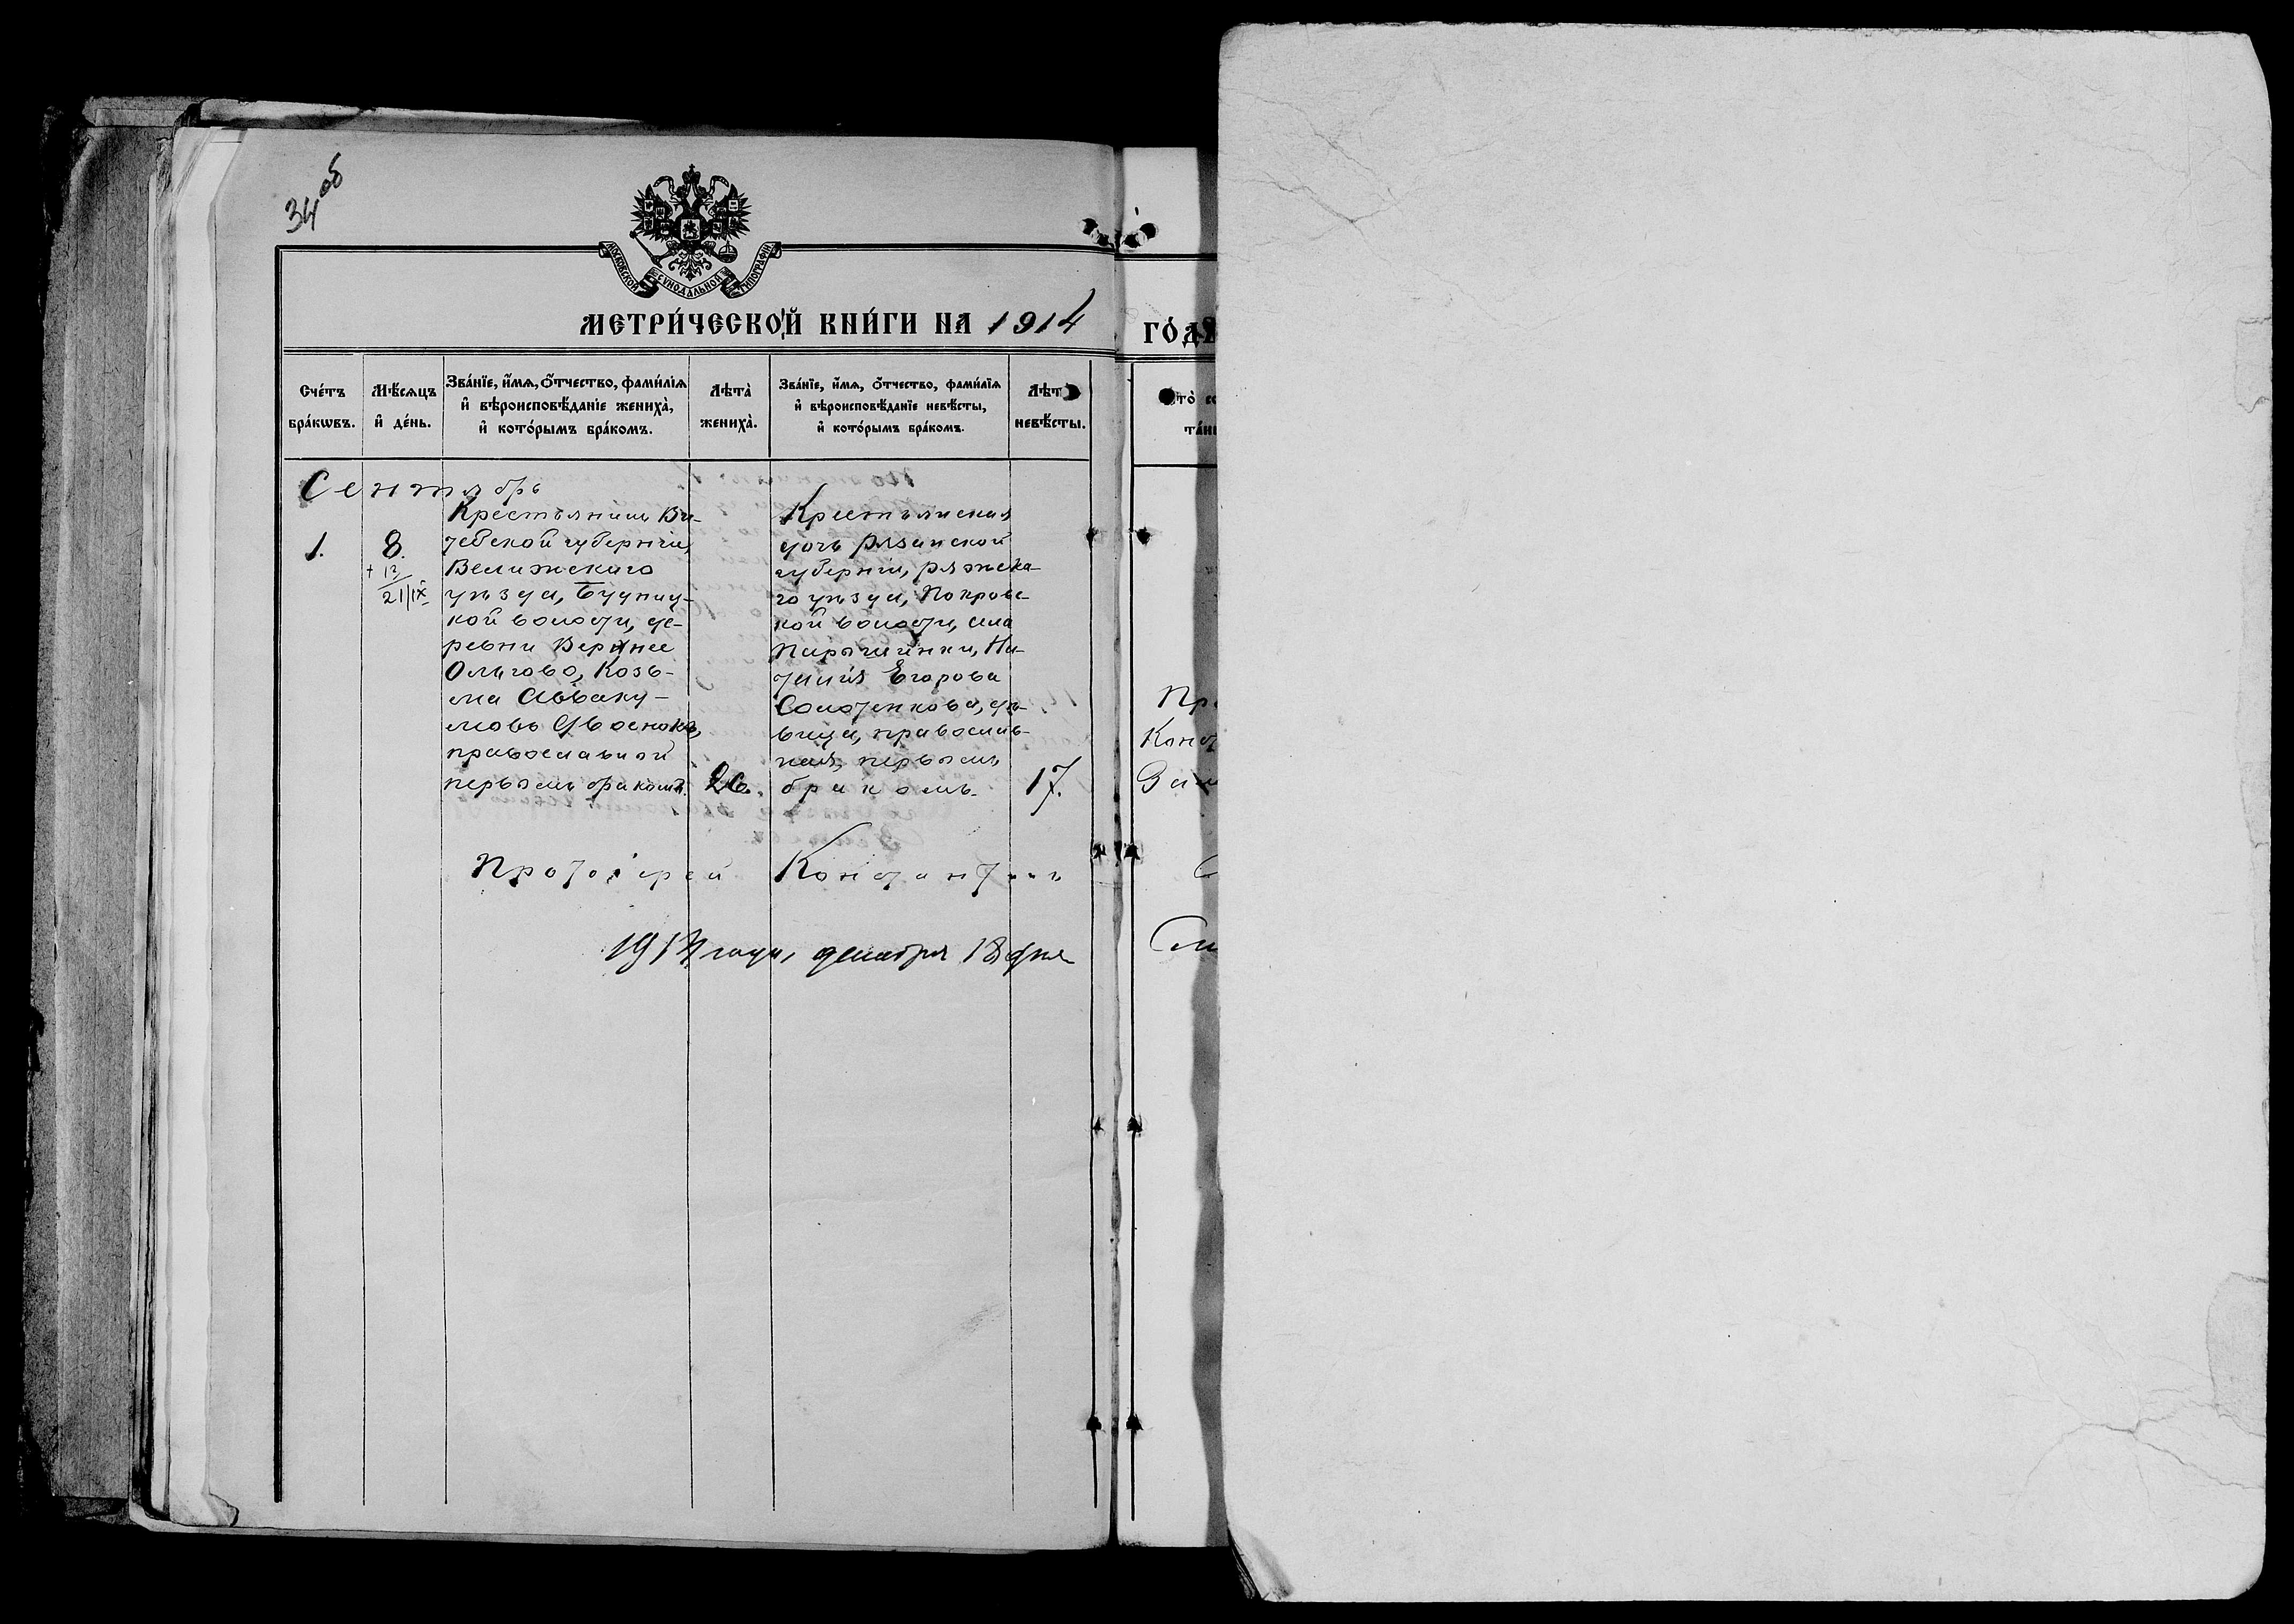 34 об
МОСКОВСКОЙ СѴНОДАЛЬНОЙ ТИПОГРАФІИ
МЕТРИ́ЧЕСКОЙ КНИ́ГИ НА 1914 ГО́ДЪ
Сче́тъ бра́кѡвъ.
Мѣ́сѧцъ и҆ де́нь.
Зва́нїе, и҆́мѧ, ѻ҆́тчество, фами́лїѧ и҆ вѣроисповѣ́данїе жениха̀, и҆ кото́рымъ бра́комъ.
Лѣта̀ жениха̀.
Зва́нїе, и҆́мѧ, ѻ҆́тчество, фами́лїѧ и҆ вѣроисповѣ́данїе невѣ́сты, и҆ кото́рымъ бра́комъ.
Лѣт невѣ́сты.
Сентябрь
1.
8.
+ 12/21/IX
Крестьянинъ Ви-
тебской губерніи,
Велижскаго
уѣзда,
кой волости, де-
ревни Верхнее
Ольгово, Козь-
ма Авваку-
мовъ
православный
первымъ бракомъ.
26.
Крестьянская
дочь Рязанской
губерніи, Ряжска-
го уѣзда, Покровс-
кой волости, села
На-
талія Егорова
дѣ-
вица, православ-
ная, первымъ
бракомъ.
17.
Протоіерей Константинъ
1914 года, декабря 18 дня
Пр
Конст